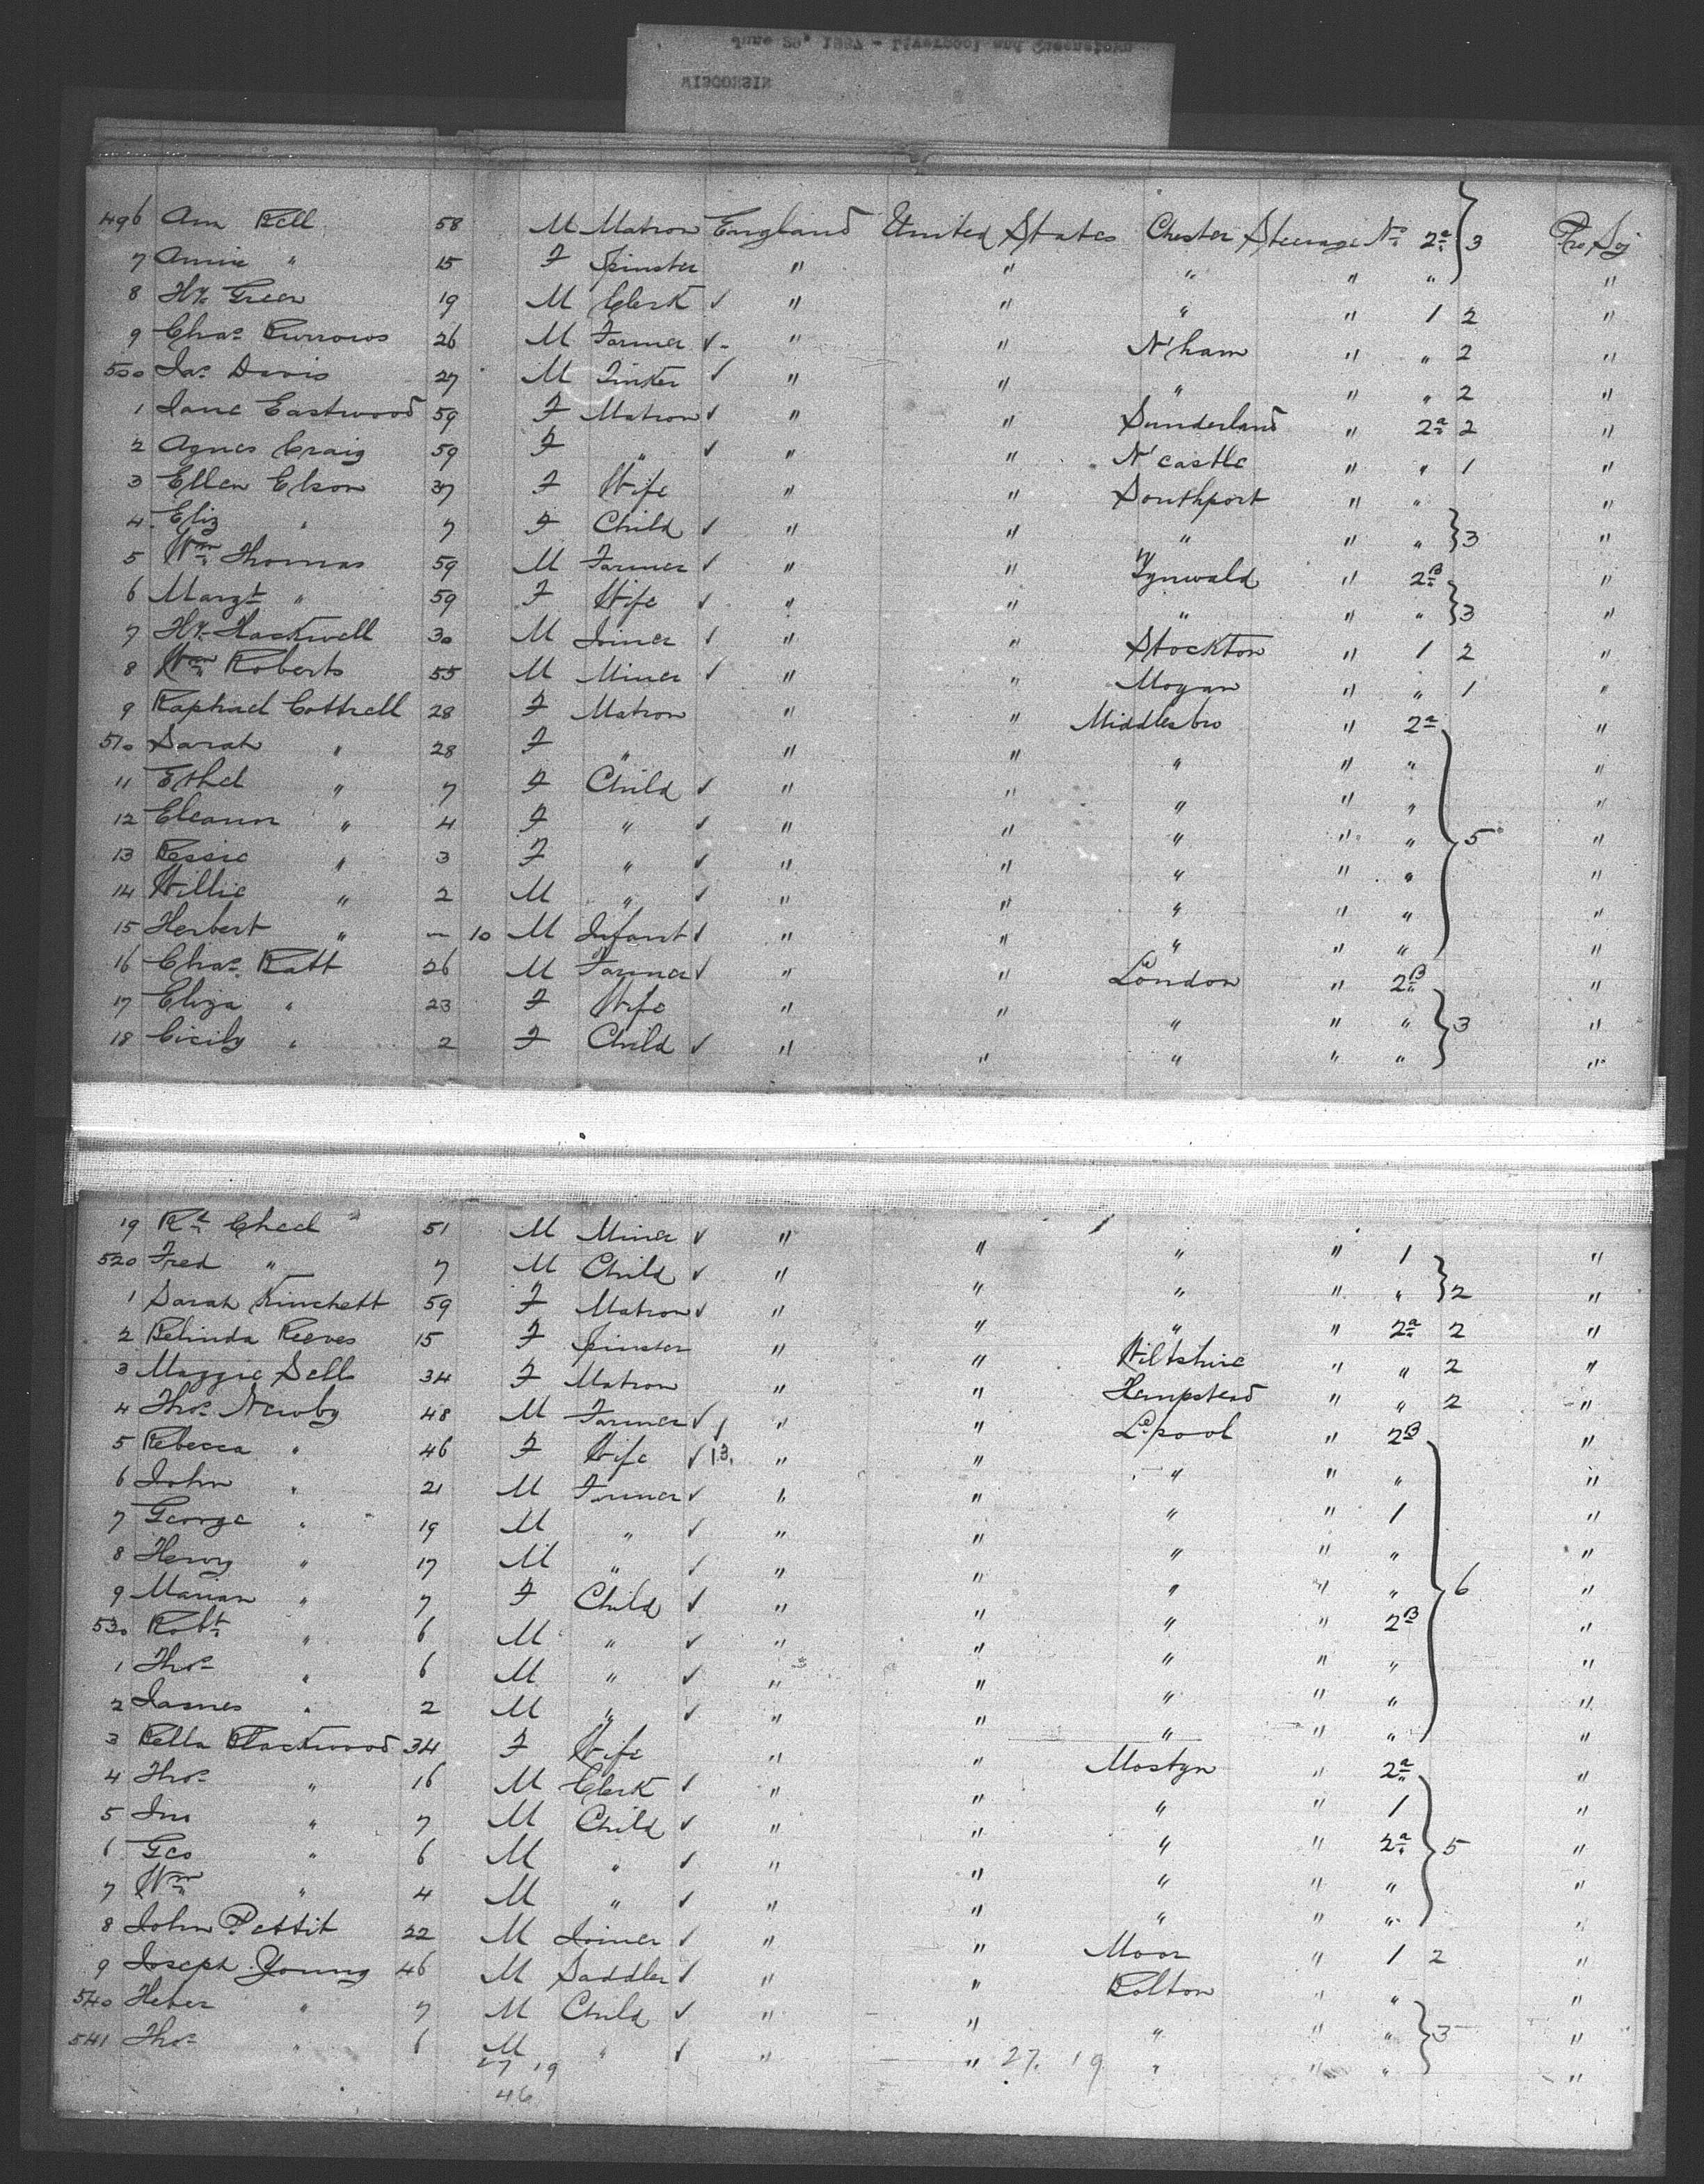 June 28" 1887 - Liverpool and Queenstown
WISCONSIN
496 Ann Bell 58 M Matron England United States Chester Steerage No 2a 3 Pro Soj
7 Annie " 15 F Spinster " " " " " "
8 Hy. Green 19 M Clerk ✓ " " " " 1 2 "
9 Chas. Burrows 26 M Farmer ✓ " " N'ham " " 2 "
500 Jas. Davis 27 M Tinker ✓ " " " " " 2 "
1 Jane Eastwood 59 F Matron ✓ " " Sunderland " 2a 2 "
2 Agnes Craig 59 F " ✓ " " N'castle " " 1 "
3 Ellen Elson 37 F Wife " " Southport " " "
4 Eliz " 7 F Child ✓ " " " " " 3 "
5 Wm Thomas 59 M Farmer ✓ " " Tynwald " 2B "
6 Margt " 59 F Wife ✓ " " " " " 3 "
7 Hy. Hackwell 30 M Joiner ✓ " " Stockton " 1 2 "
8 Wm Roberts 55 M Miner ✓ " " Mogan " " 1 "
9 Raphael Cottrell 28 F Matron " " Middlesbro " 2a "
510 Sarah " 28 F " " " " " " "
11 Ethel " 7 F Child ✓ " " " " " "
12 Eleanor " 4 F " ✓ " " " " " 5 "
13 Bessie " 3 F " ✓ " " " " " "
14 Willie " 2 M " ✓ " " " " " "
15 Herbert " - 10 M Infant ✓ " " " " " "
16 Chas. Batt 26 M Farmer ✓ " " London " 2B "
17 Eliza " 23 F Wife " " " " " 3 "
18 Cicily " 2 F Child ✓ " " " " " "
19 Rt. Cheel 51 M Miner ✓ " " " " 1 "
520 Fred " 7 M Child ✓ " " " " " 2 "
1 Sarah Kinchett 59 F Matron ✓ " " " " 2a 2 "
2 Belinda Reeves 15 F Spinster " " Wiltshire " " 2 "
3 Maggie Sell 34 F Matron " " Hempstead " " 2 "
4 Thos. Newby 48 M Farmer ✓ " " L'pool " 2B "
5 Rebecca " 46 F Wife ✓ 13. " " " " " "
6 John " 21 M Farmer ✓ " " " " 1 "
7 George " 19 M " ✓ " " " " " "
8 Henry " 17 M " ✓ " " " " " 6 "
9 Marian " 7 F Child ✓ " " " " 2B "
530 Robt. " 6 M " ✓ " " " " " "
1 Thos. " 6 M " ✓ " " " " " "
2 James " 2 M " ✓ " " " " " "
3 Bella Blackwood 34 F Wife " " Mostyn " 2a "
4 Thos. " 16 M Clerk ✓ " " " " 1 "
5 Jno " 7 M Child ✓ " " " " 2a 5 "
6 Geo " 6 M " ✓ " " " " " "
7 Wm " 4 M " ✓ " " " " " "
8 John Pettit 22 M Joiner ✓ " " Moor " 1 2 "
9 Joseph Young 46 M Saddler ✓ " " Bolton " " "
540 Heber " 7 M Child ✓ " " " " " 3 "
541 Thos. " 6 M " ✓ " " " " " "
27 19 27. 19
46